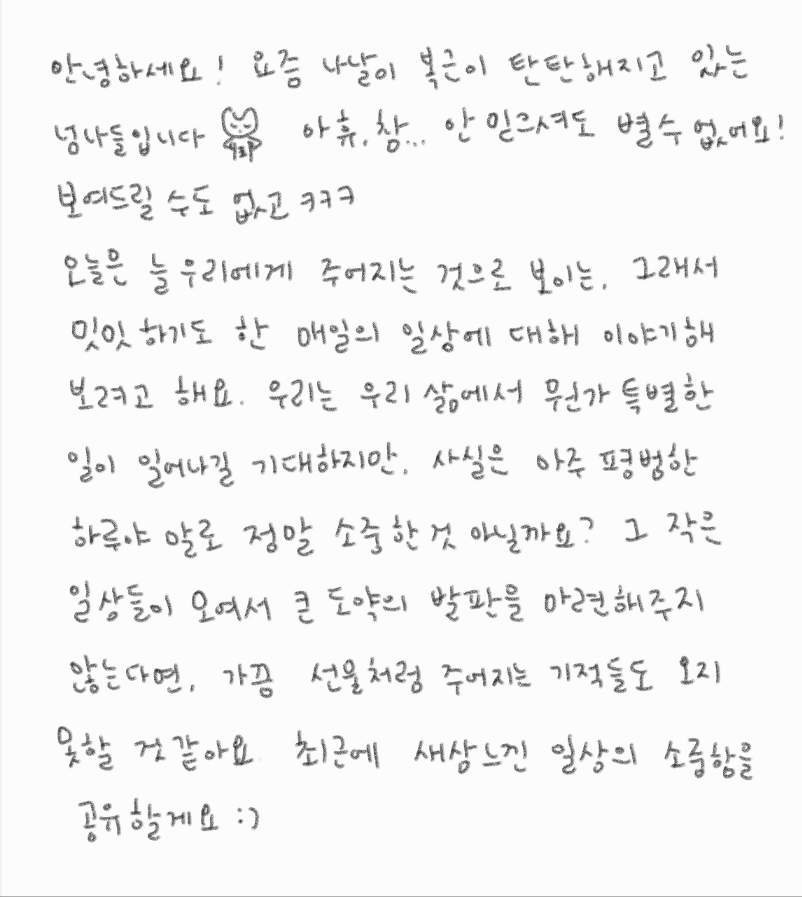 안녕하세요! 요즘 나날이 복근이 탄탄해지고 있는
넝나들입니다 아휴, 참... 안 믿으셔도 별수 없어요!
보여드릴 수도 없고 ㅋㅋㅋ
오늘은 늘 우리에게 주어지는 것으로 보이는, 그래서
밋밋하기도 한 매일의 일상에 대해 이야기해
보려고 해요. 우리는 우리 삶에서 뭔가 특별한
일이 일어나길 기대하지만, 사실은 아주 평범한
하루야 말로 정말 소중한 것 아닐까요? 그 작은
일상들이 모여서 큰 도약의 발판을 마련해주지
않는다면, 가끔 선물처럼 주어지는 기적들도 오지
못할 것 같아요. 최근에 새삼 느낀 일상의 소중함을
공유할게요 :)